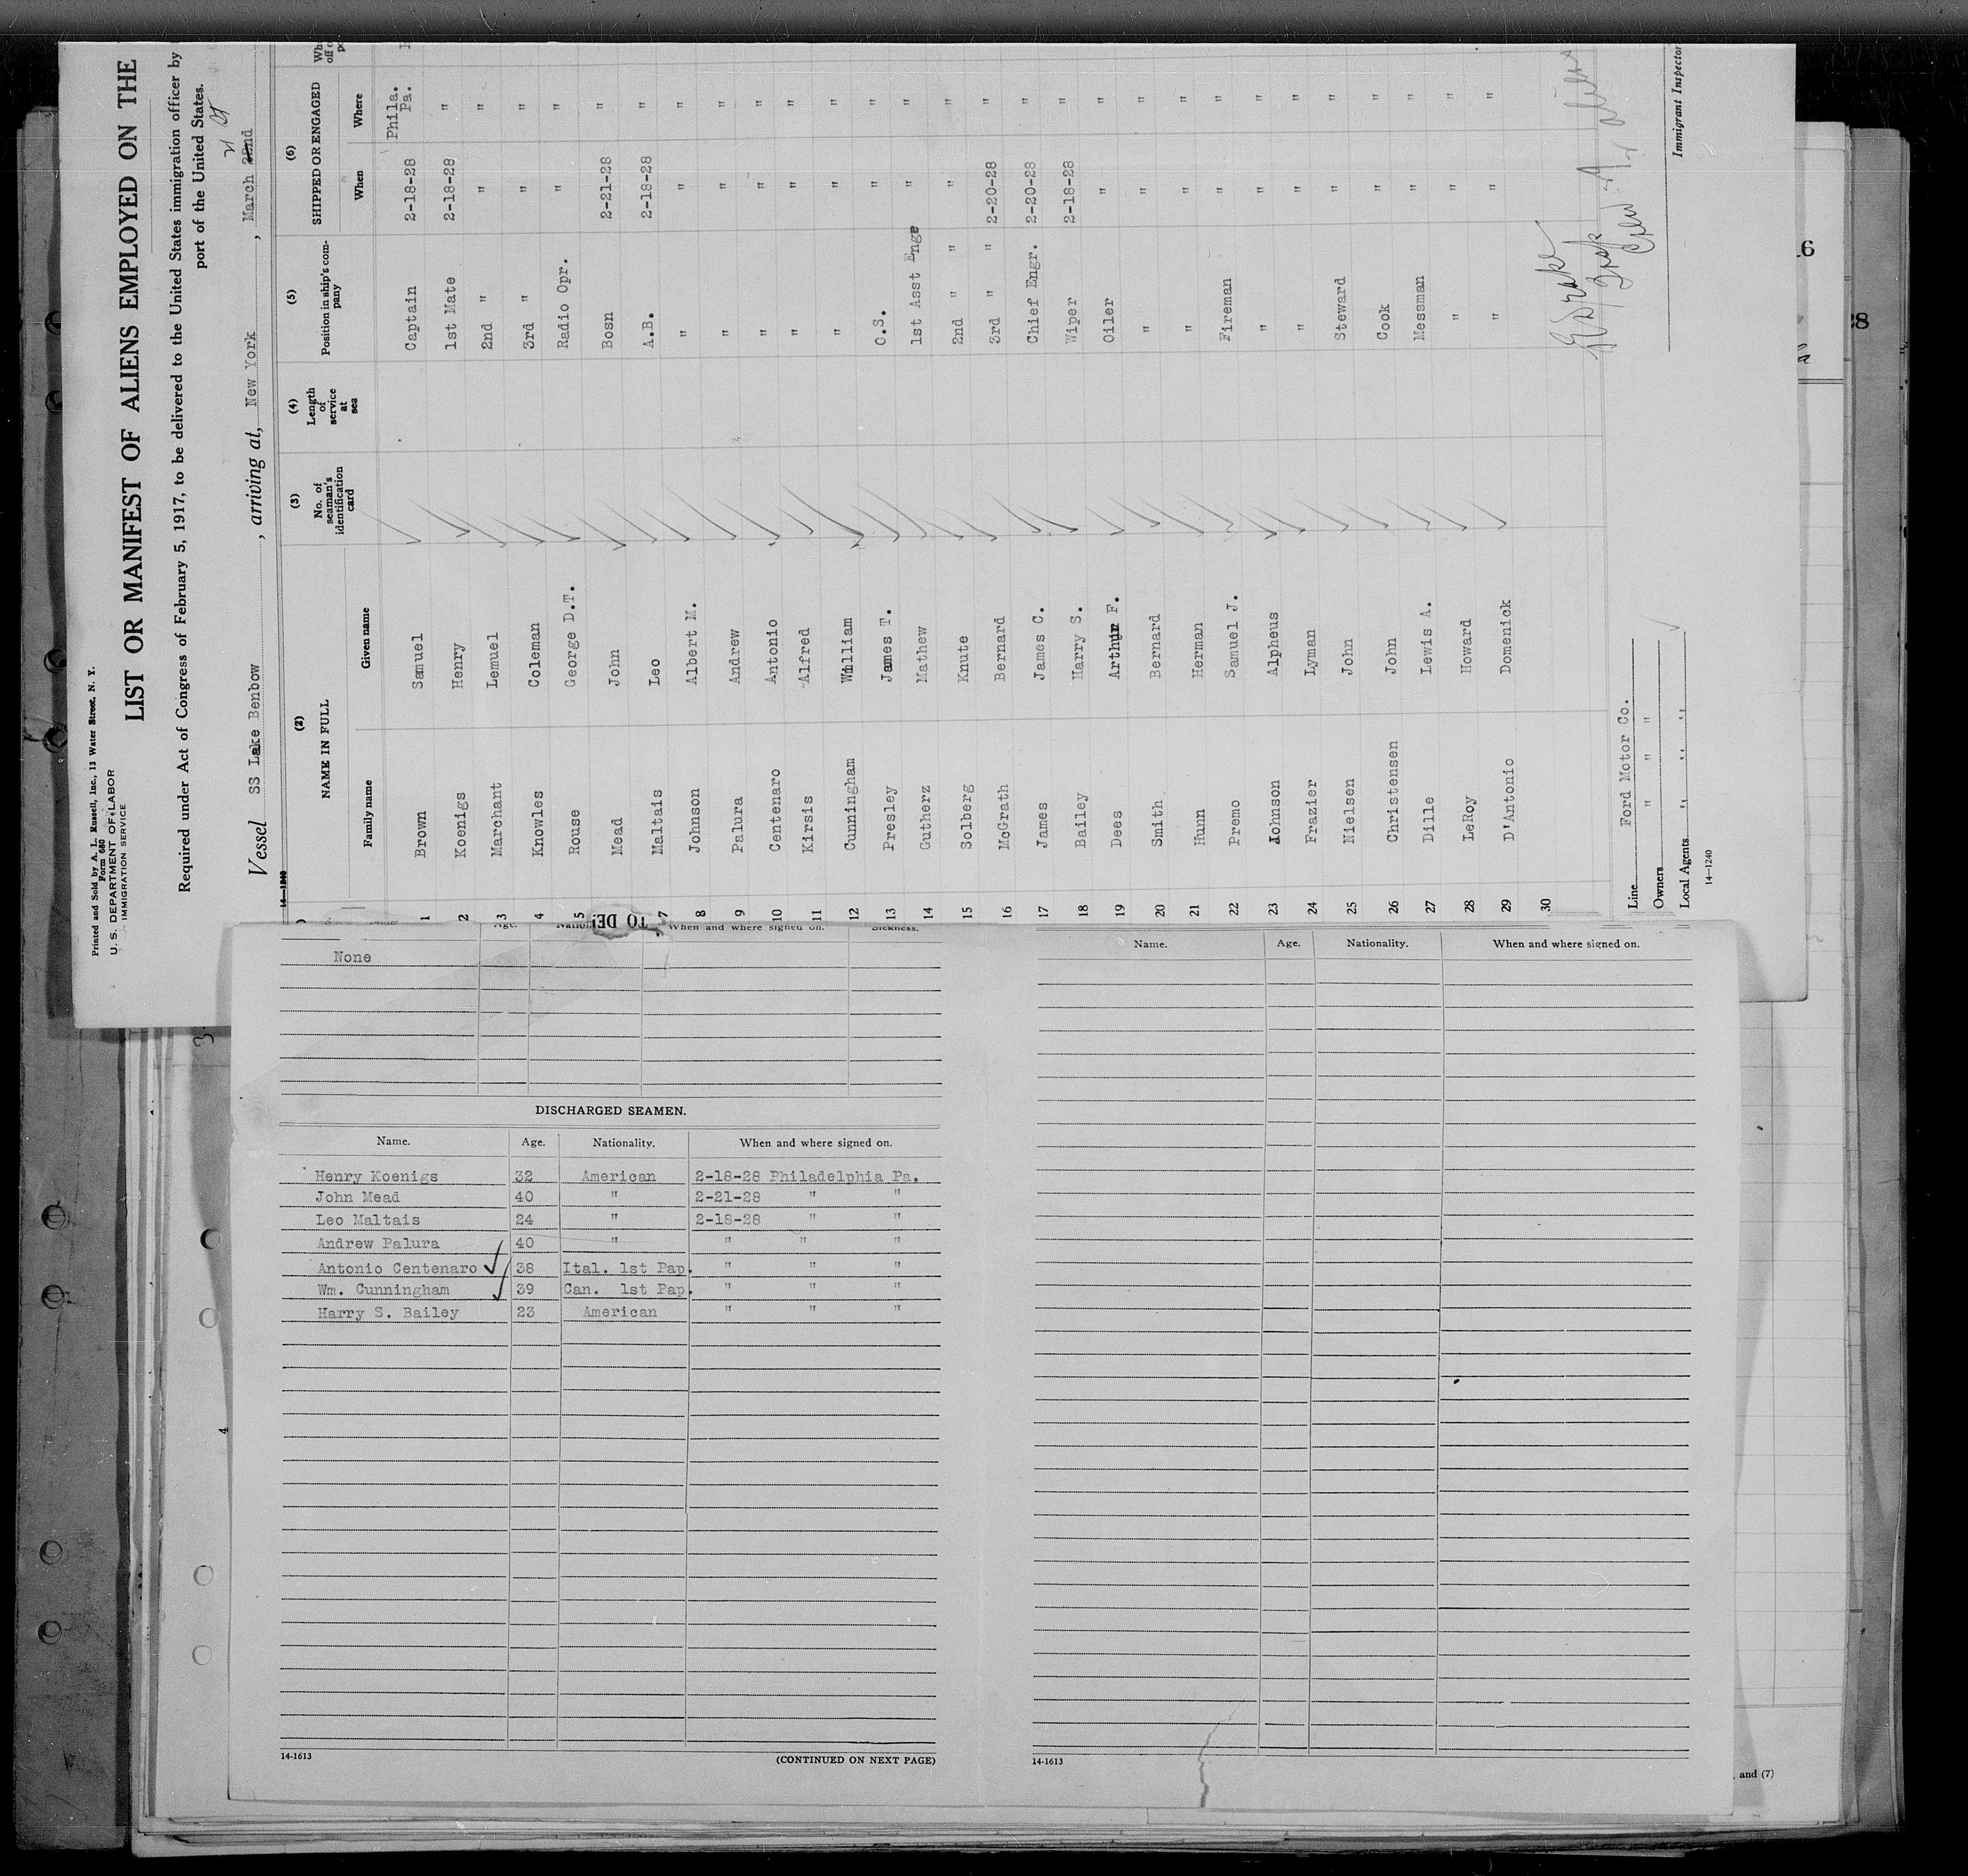 Printed and Sold by A. L. Russell, Inc., 13 Water Street, N. Y.
Form 680
U. S. DEPARTMENT OF LABOR
IMMIGRATION SERVICE
LIST OR MANIFEST OF ALIENS EMPLOYED ON THE
Required under Act of Congress of February 5, 1917, to be delivered to the United States immigration officer by
port of the United States.
Vessel SS Lake Benbow, arriving at, New York, March 22nd
14—1240
(2) (3) (4) (5) (6)
NAME IN FULL No. of seaman's identification card Length of service at sea Position in ship's company SHIPPED OR ENGAGED
Family name Given name When Where
1 Brown Samuel Captain 2-18-28 Phila. Pa.
2 Koenigs Henry 1st Mate 2-18-28 "
3 Marchant Lemuel 2nd " " "
4 Knowles Coleman 3rd " " "
5 Rouse George D.T. Radio Opr. " "
Mead John Bosn 2-21-28 "
7 Maltais Leo A.B. 2-18-28 "
8 Johnson Albert M. " " "
9 Palura Andrew " " "
10 Centenaro Antonio " " "
11 Kirsis Alfred " " "
12 Cunningham William " " "
13 Presley James T. O.S. " "
14 Gutherz Mathew 1st Asst Enge " "
15 Solberg Knute 2nd " " " "
16 McGrath Bernard 3rd " " 2-20-28 "
17 James James C. Chief Engr. 2-20-28 "
18 Bailey Harry S. Wiper 2-18-28 "
19 Dees Arthur F. Oiler " "
20 Smith Bernard " " "
21 Hunn Herman " " "
22 Premo Samuel J. Fireman " "
23 Johnson Alpheus " " "
24 Frazier Lyman " " "
25 Nielsen John Steward " "
26 Christensen John Cook " "
27 Dille Lewis A. Messman " "
28 LeRoy Howard " " "
29 D'Antonio Domenick " " "
30
Line Ford Motor Co.
Owners " " "
Local Agents " " "
Immigrant Inspector
14—1240
TO DE
Age. When and where signed on. Sickness.
None
DISCHARGED SEAMEN.
Name. Age. Nationality. When and where signed on.
Henry Koenigs 32 American 2-18-28 Philadelphia Pa.
John Mead 40 " 2-21-28 " "
Leo Maltais 24 " 2-18-28 " "
Andrew Palura 40 " " " "
Antonio Centenaro 38 Ital. 1st Pap. " " "
Wm. Cunningham 39 Can. 1st Pap. " " "
Harry S. Bailey 23 American " " "
14-1613 (CONTINUED ON NEXT PAGE)
Name. Age. Nationality. When and where signed on.
14-1613
and (7)